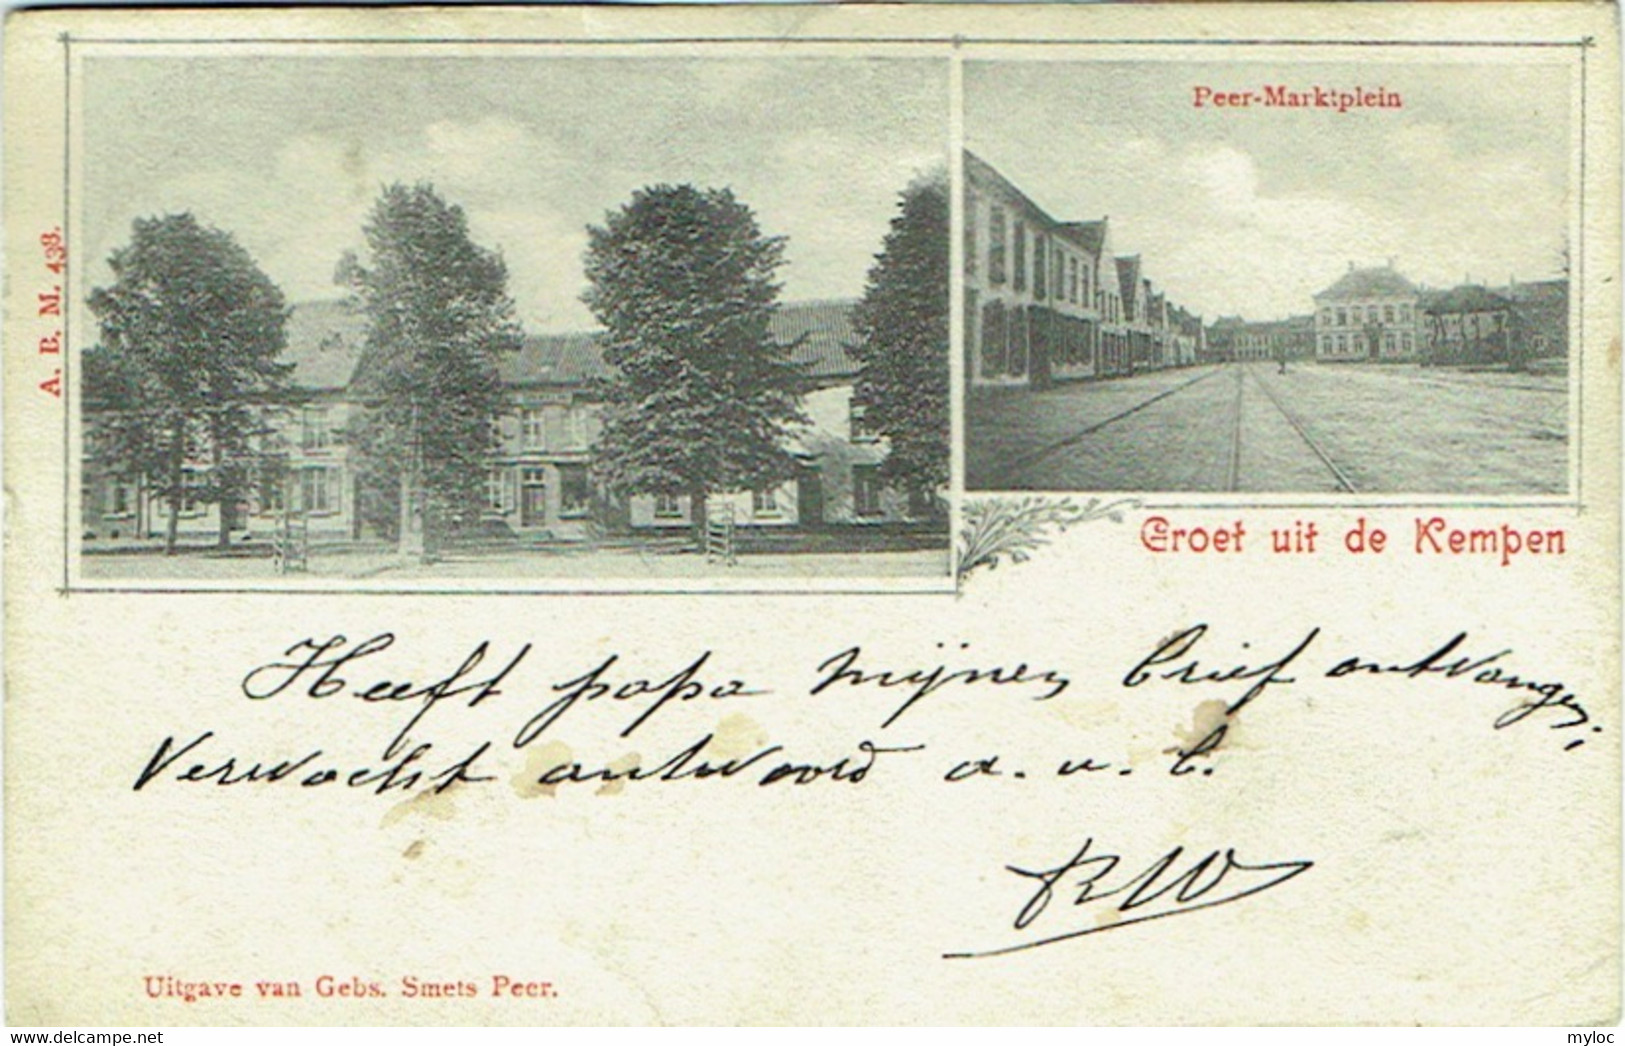 Peer-Marktplein
A. B. M. 438.
Groet uit de Kempen
Heeft papa mijnen brief ontvangen;
Verwacht antwoord a.u.b.
RW
Uitgave van Gebs. Smets Peer.
delcampe.net
myloc